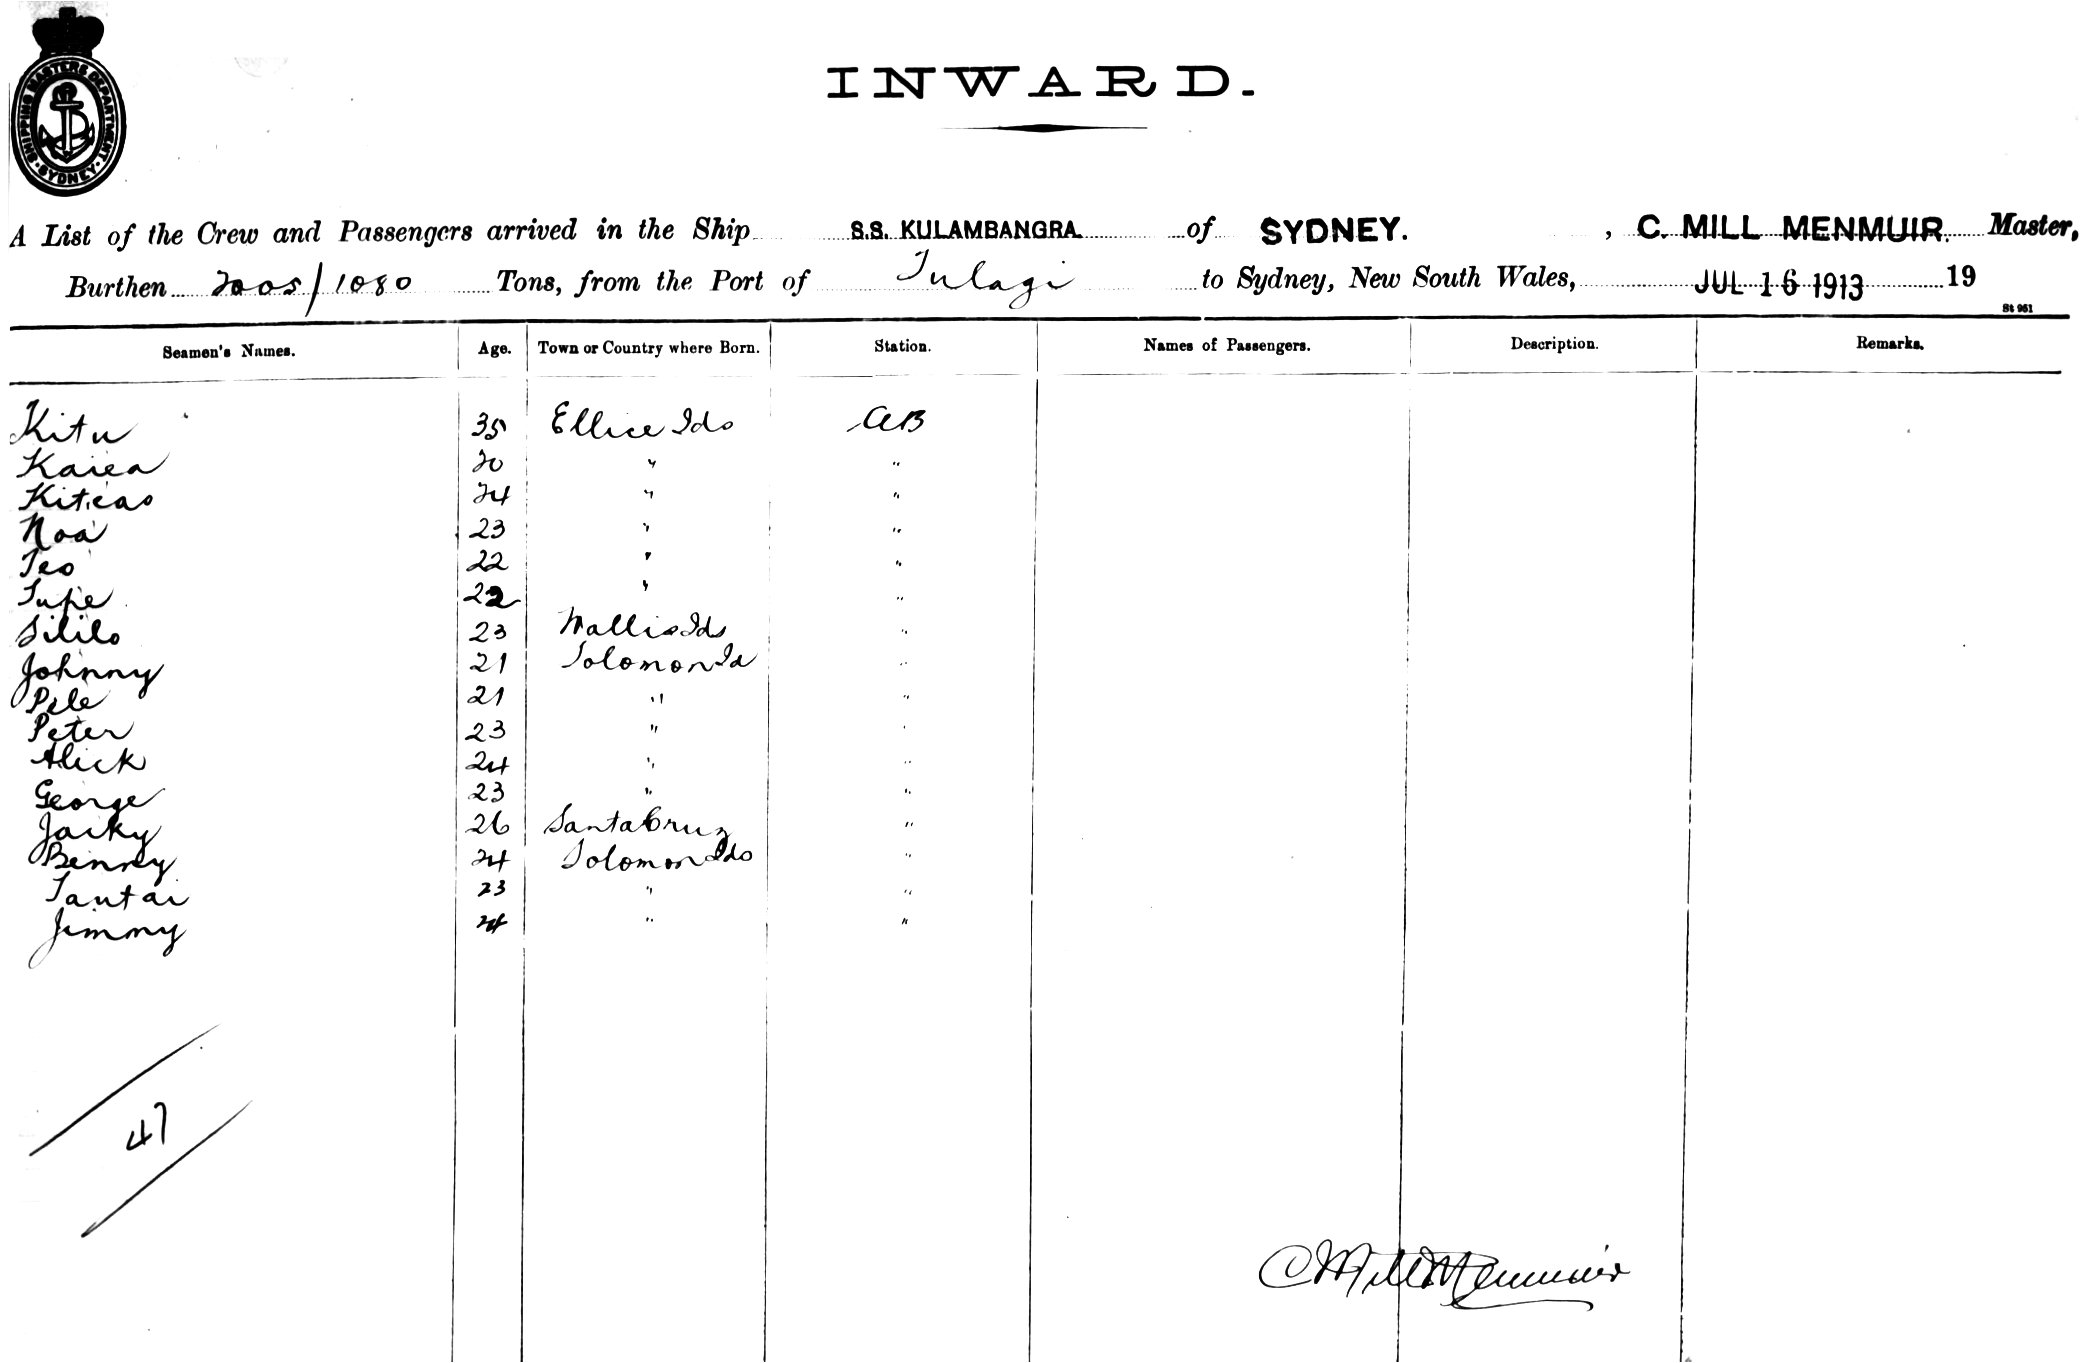 SHIPPING MASTERS DEPARTMENT
SYDNEY
INWARD.
A List of the Crew and Passengers arrived in the Ship S.S. KULAMBANGRA of SYDNEY. , C. MILL MENMUIR. Master,
Burthen 2005/1080 Tons, from the Port of Tulagi to Sydney, New South Wales, JUL 16 1913 19
St 951
Seamen's Names. Age. Town or Country where Born. Station. Names of Passengers. Description. Remarks.
Kitu 35 Ellice Ids AB
Kaiea 20 " "
Kiteao 24 " "
Noa 23 " "
Teo 22 " "
Tupe 22 " "
Sililo 23 Wallis Ids "
Johnny 21 Solomon Id "
Pele 21 " "
Peter 23 " "
Alick 24 " "
George 23 " "
Jacky 26 Santa Cruz "
Benny 24 Solomon Ids "
Tautai 23 " "
Jimmy 24 " "
47
C Mill Menmuir